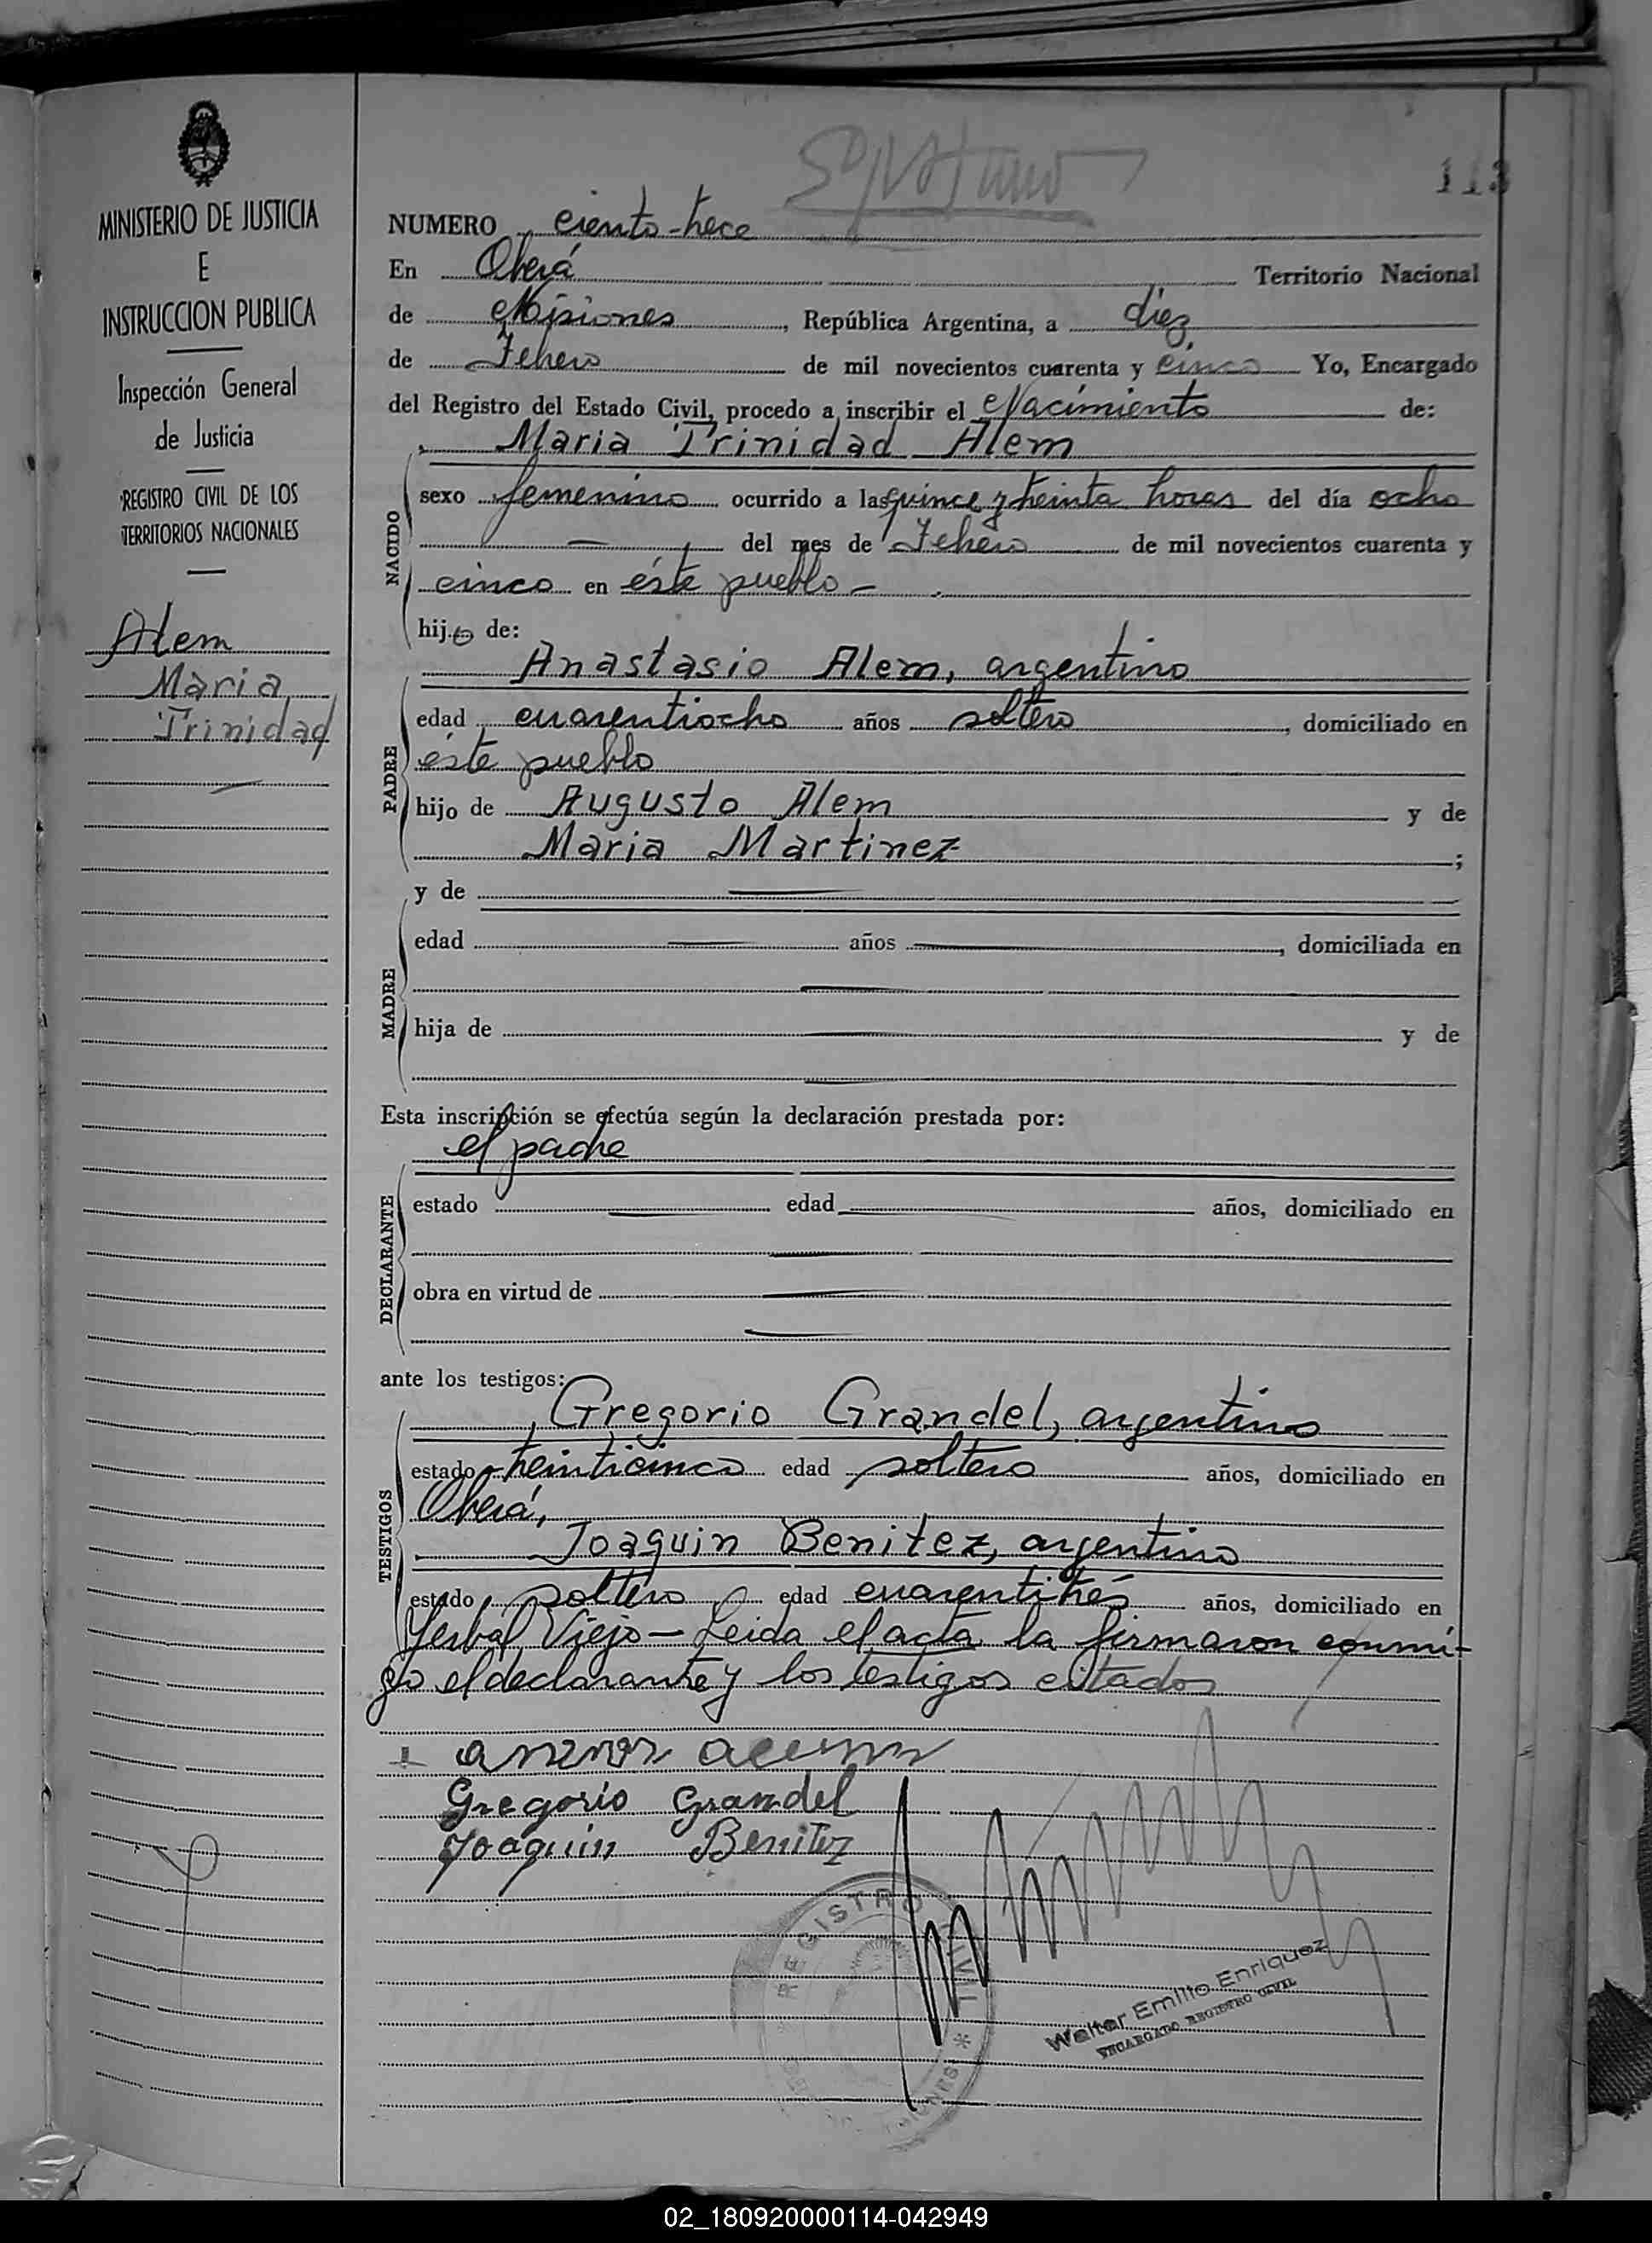 MINISTERIO DE JUSTICIA
E
INSTRUCCION PUBLICA
Inspección General
de Justicia
REGISTRO CIVIL DE LOS
TERRITORIOS NACIONALES
Alem
Maria
Trinidad
113
NUMERO ciento trece
En Oberá Territorio Nacional
de Misiones, República Argentina, a diez
de Febrero de mil novecientos cuarenta y cinco Yo, Encargado
del Registro del Estado Civil, procedo a inscribir el Nacimiento de:
Maria Trinidad Alem
NACIDO
sexo femenino ocurrido a las quince y treinta horas del día ocho
del mes de Febrero de mil novecientos cuarenta y
cinco en éste pueblo
hij de:
Anastasio Alem, argentino
PADRE
edad cuarentiocho años soltero, domiciliado en
éste pueblo
hijo de Augusto Alem y de
Maria Martinez;
y de
MADRE
edad años, domiciliada en
hija de y de
Esta inscripción se efectúa según la declaración prestada por:
el padre
DECLARANTE
estado edad años, domiciliado en
obra en virtud de
ante los testigos:
Gregorio Grandel, argentino
TESTIGOS
estado treinticinco edad soltero años, domiciliado en
Oberá,
Joaquin Benitez, argentino
estado soltero edad cuarentitrés años, domiciliado en
Yerbal Viejo - Leida el acta la firmaron conmi-
go el declarante y los testigos citados
Gregorio Grandel
Joaquin Benitez
REGISTRO CIVIL
Walter Emilio Enriquez
ENCARGADO REGISTRO CIVIL
02_180920000114-042949